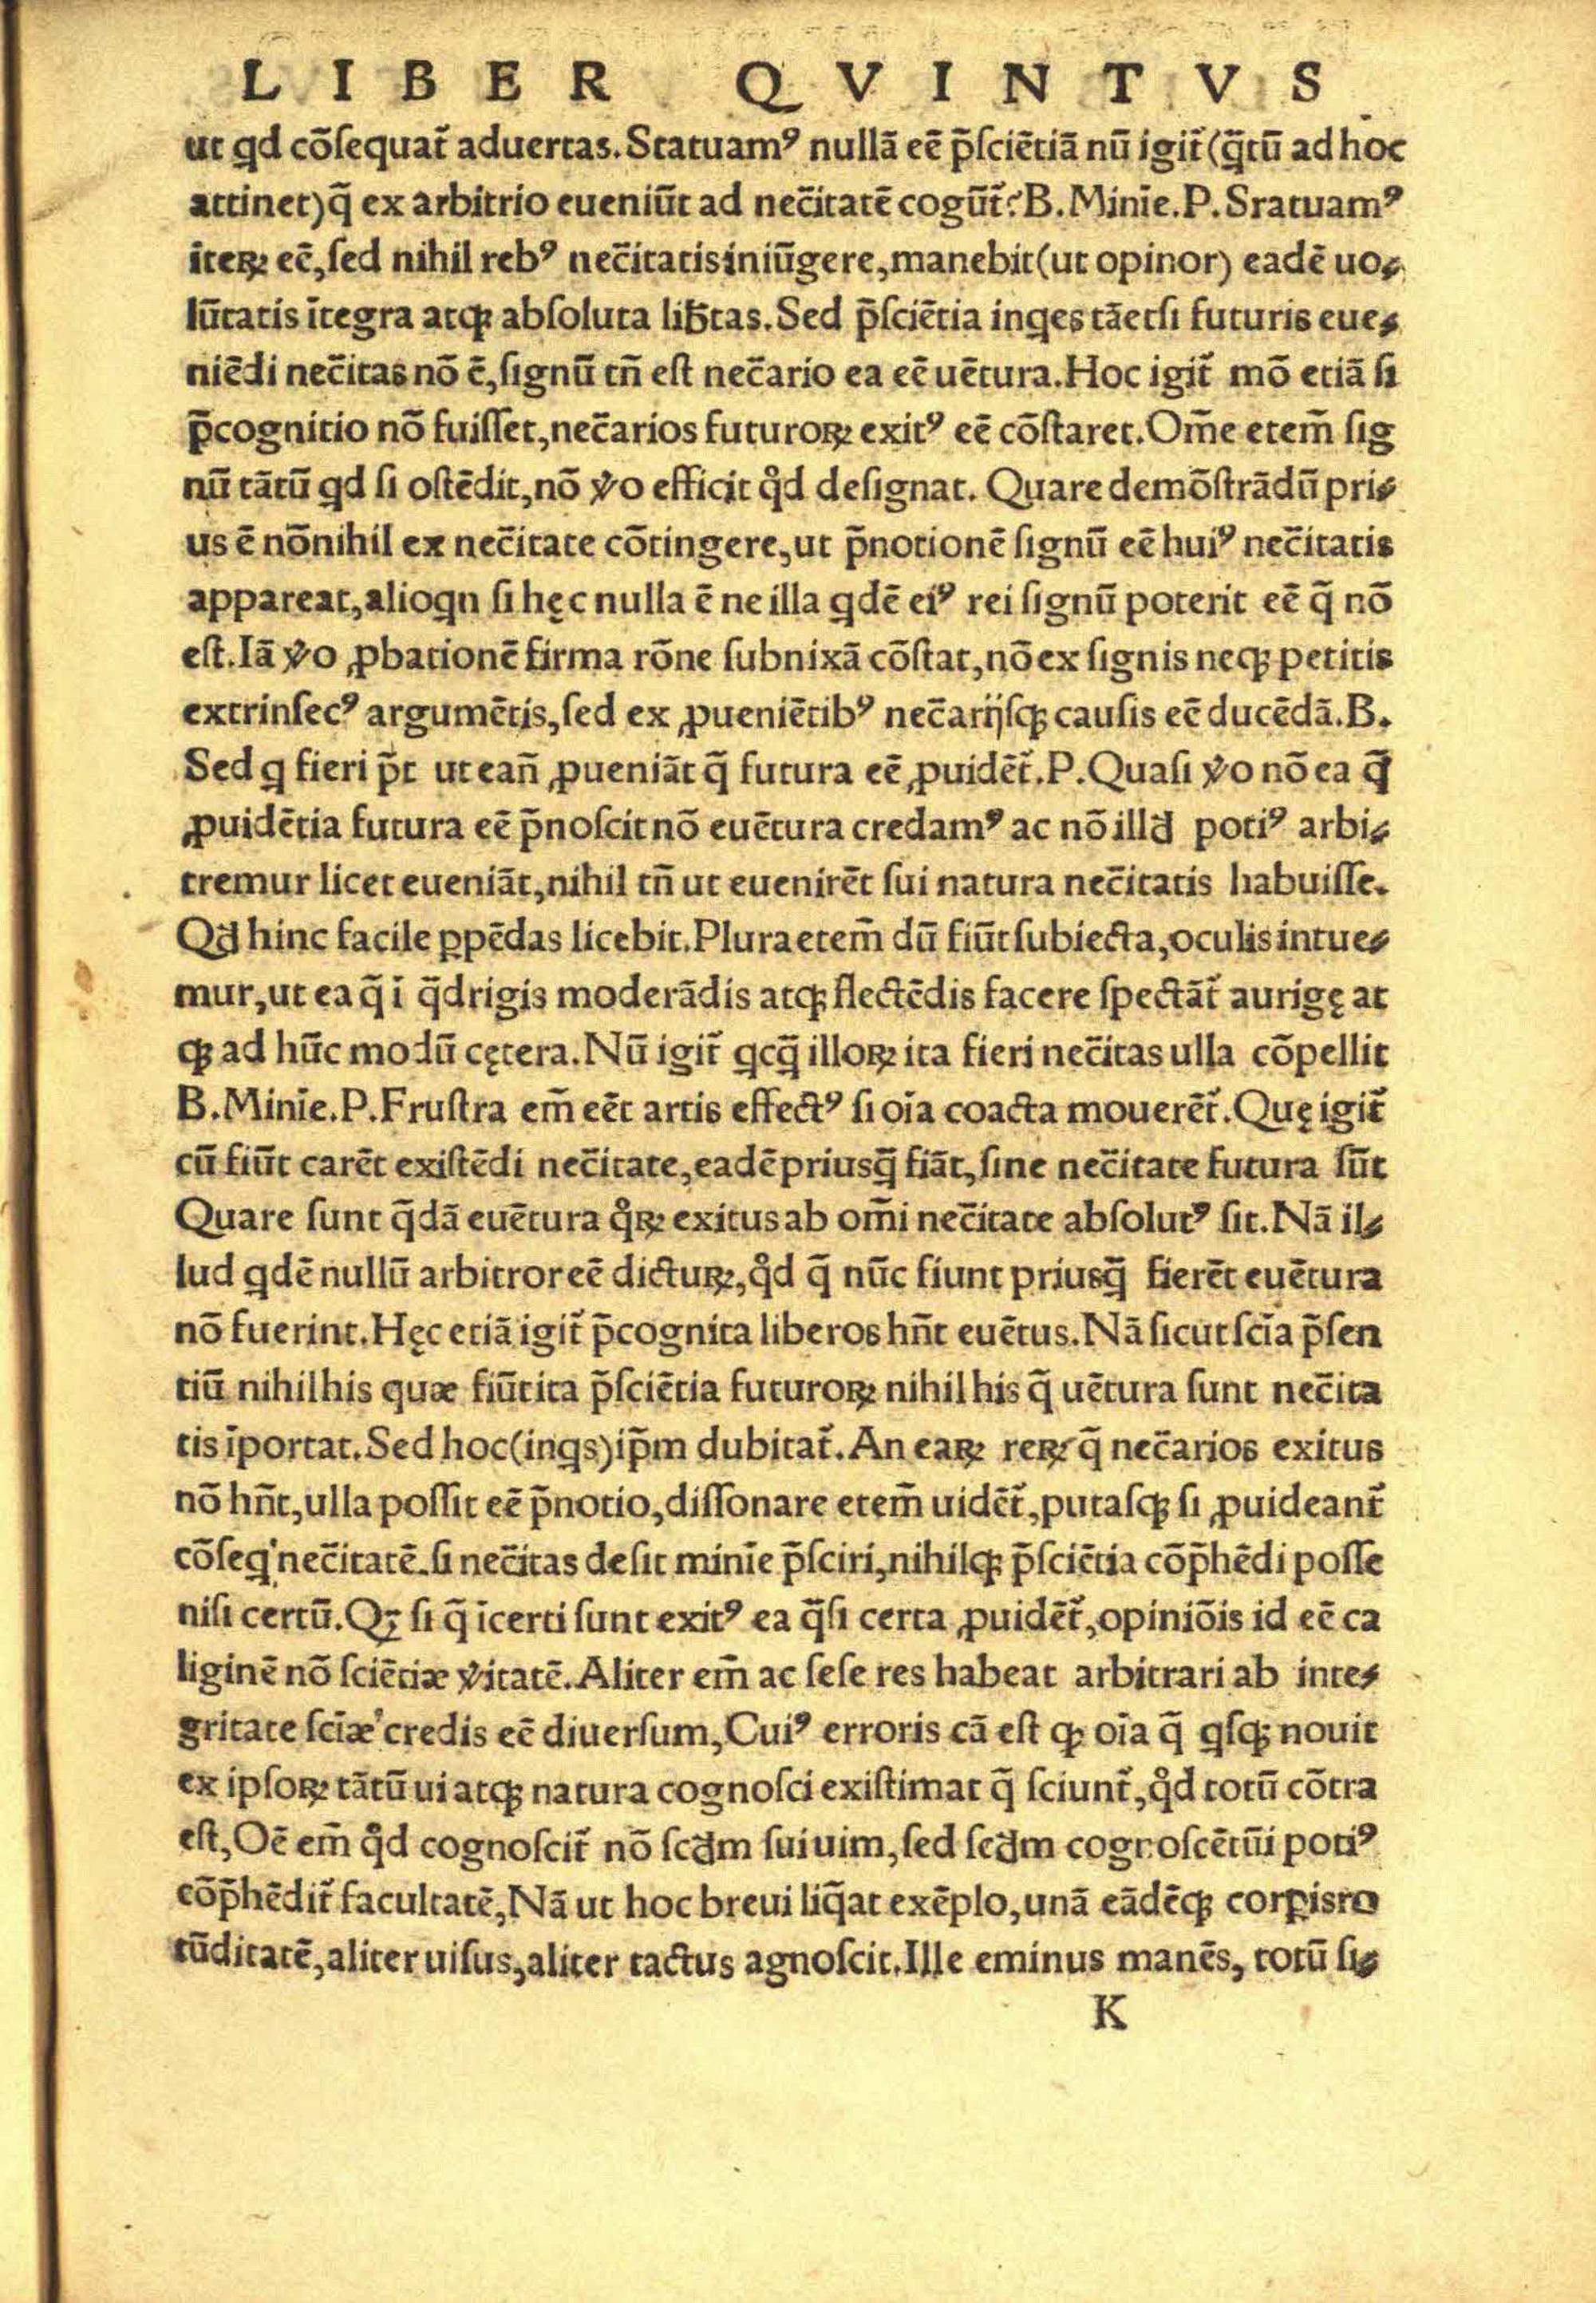 LIBER QVINTVS
ut qd cōſequat᷑ aduertas. Statuamꝰ nullā eē p̄ſciētiā nū igit᷑ (q̄tū ad hoc
attinet) q̄ ex arbitrio eueniūt ad nec̄itatē cogūt᷑? B. Minīe. P. Sratuamꝰ
iteꝝ eē, ſed nihil rebꝰ nec̄itatis iniūgere, manebit (ut opinor) eadē uo⸗
lūtatis ītegra atꝙ abſoluta lib̄tas. Sed p̄ſciētia inqes tāetſi futuris eue⸗
niēdi nec̄itas nō ē, ſignū tn̄ eſt nec̄ario ea eē uētura. Hoc igit᷑ mō etiā ſi
p̄cognitio nō fuiſſet, nec̄arios futuroꝝ exitꝰ eē cōſtaret. Om̄e etem̄ ſig
nū tātū qd ſi oſtēdit, nō v̊o efficit qͦd deſignat. Quare demōſtrādū pri⸗
us ē nōnihil ex nec̄itate cōtingere, ut p̄notionē ſignū eē huiꝰ nec̄itatis
appareat, alioqn ſi hęc nulla ē ne illa qdē eiꝰ rei ſignū poterit eē q̄ nō
eſt. Iā v̊o ꝓbationē firma rōne ſubnixā cōſtat, nō ex ſignis neꝙ petitis
extrinſecꝰ argumētis, ſed ex ꝓueniētibꝰ nec̄arijſꝙ cauſis eē ducēdā. B.
Sed q fieri p̄t ut ean̄ ꝓueniāt q̄ futura eē ꝓuidēt᷑. P. Quaſi v̊o nō ea q̄
ꝓuidētia futura eē p̄noſcit nō euētura credamꝰ ac nō illđ potiꝰ arbi⸗
tremur licet eueniāt, nihil tn̄ ut euenirēt ſui natura nec̄itatis habuiſſe.
Qđ hinc facile ꝑpēdas licebit. Plura etem̄ dū fiūt ſubiecta, oculis intue⸗
mur, ut ea q̄ ī q̄drigis moderādis atꝙ flectēdis facere ſpectāt᷑ aurigę at
ꝙ ad hūc modū cętera. Nū igit᷑ qcq̄ illoꝝ ita fieri nec̄itas ulla cōpellit
B. Minīe. P. Fruſtra em̄ eēt artis effectꝰ ſi oīa coacta mouerēt᷑. Quę igit᷑
cū fiūt carēt exiſtēdi nec̄itate, eadē priusq̄ fiāt, ſine nec̄itate futura ſūt
Quare sunt q̄dā euētura qͦꝝ exitus ab om̄i nec̄itate abſolutꝰ ſit. Nā il⸗
lud qdē nullū arbitror eē dictuꝝ, qͦd q̄ nūc fiunt priusq̄ fierēt euētura
nō fuerint. Hęc etiā igit᷑ p̄cognita liberos hn̄t euētus. Nā ſicut ſcīa p̄ſen
tiū nihil his quæ fiūt ita p̄ſciētia futuroꝝ nihil his q̄ uētura sunt nec̄ita
tis īportat. Sed hoc (inqs) ip̄m dubitat᷑. An eaꝝ reꝝ q̄ nec̄arios exitus
nō hn̄t, ulla poſſit eē p̄notio, diſſonare etem̄ uidēt᷑, putaſꝙ ſi ꝓuideant᷑
cōſeq nec̄itatē. ſi nec̄itas deſit minīe p̄ſciri, nihilꝙ p̄ſciētia cōp̄hēdi poſſe
niſi certū. Qꝫ ſi q̄ īcerti sunt exitꝰ ea q̄ſi certa ꝓuidēt᷑, opiniōis id eē ca
liginē nō ſciētiæ v̊itatē. Aliter em̄ ac ſeſe res habeat arbitrari ab inte⸗
gritate ſcīæ credis eē diuerſum, Cuiꝰ erroris cā eſt ꝙ oīa q̄ qſꝙ nouit
ex ipſoꝝ tātū ui atꝙ natura cognoſci exiſtimat q̄ ſciunt᷑, qͦd totū cōtra
eſt, Oē em̄ qͦd cognoſcit᷑ nō ſcđm ſui uim, ſed ſcđm cognoſcētiū potiꝰ
cōp̄hēdit᷑ facultatē, Nā ut hoc breui liq̄at exēplo, unā eādēꝙ corꝑis ro
tūditatē, aliter uiſus, aliter tactus agnoſcit. Ille eminus manēs, totū ſi⸗
K